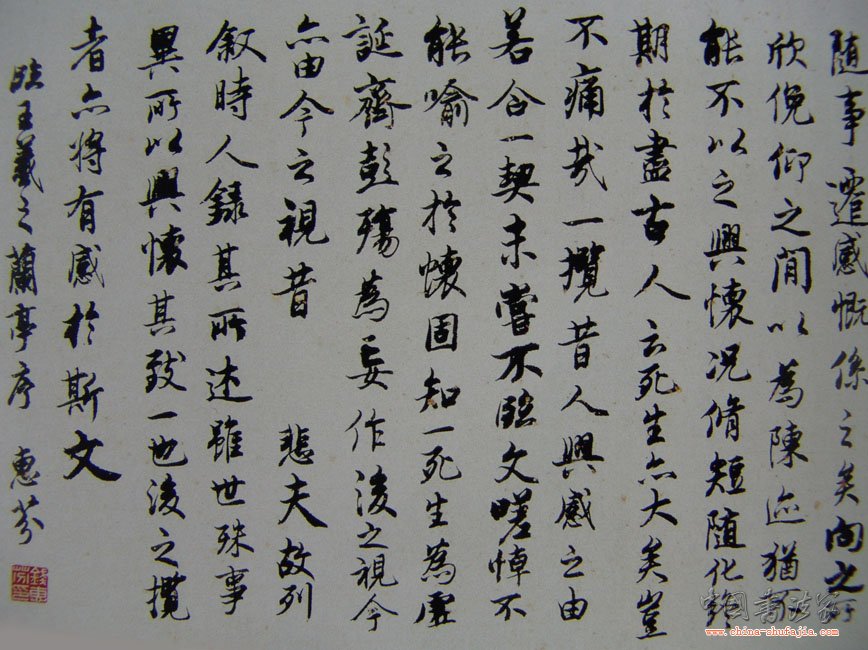 隨事遷感慨係之矣向之所
欣俛仰之閒以為陳迹猶不
能不以之興懷況脩短隨化終
期於盡古人云死生亦大矣豈
不痛哉一攬昔人興感之由
若合一契未嘗不臨文嗟悼不
能喻之於懷固知一死生為虛
誕齊彭殤為妄作後之視今
亦由今之視昔 悲夫故列
敘時人錄其所述雖世殊事
異所以興懷其致一也後之攬
者亦將有感於斯文
臨王羲之蘭亭序 惠芬
中国书法家
www.china-shufajia.com